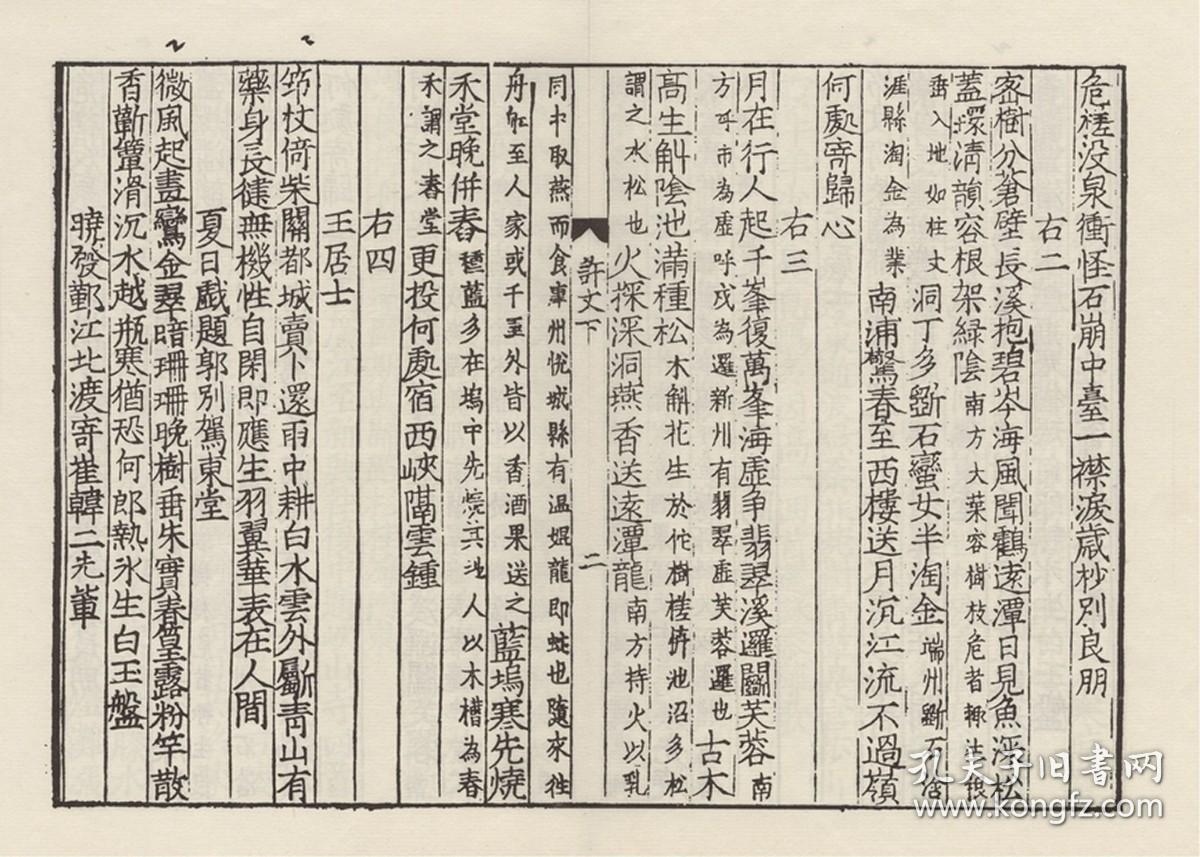 危槎没泉衝怪石崩中臺一襟淚歲杪別良朋
右二
密樹分蒼壁長溪抱碧岑海風聞鶴遠潭日見魚深松
蓋環清韻容根架緑隂南方大葉容樹枝危者輒法根
垂入地如柱丈洞丁多斵石蠻女半淘金端州斵石涪
涯縣淘金為業南浦驚春至西樓送月沉江流不過嶺
何處寄歸心
右三
月在行人起千峯復萬峯海虛争翡翠溪邏鬬芙蓉南
方呼市為虛呼戍為邏新州有翡翠虛芙蓉邏也古木
高生斛隂池滿種松木斛花生於佗樹槎㭊池沼多松
謂之水松也火探深洞燕香送遠潭龍南方持火以乳
許文下
二
同中取燕而食車州悦城縣有温媪龍即蚖也隨來往
舟舡至人家或千里外皆以香酒果送之藍塢寒先燒
禾堂晚併舂種藍多在塢中先燒其地人以木槽為舂
禾謂之舂堂更投何處宿西峽嗃雲鍾
右四
王居士
筇杖倚柴關都城賣卜還雨中耕白水雲外斸青山有
藥身長徤無機性自閑即應生羽翼華表在人間
夏日戲題郭別駕東堂
微風起畫鸞金翠暗珊珊晚樹垂朱實春篁露粉竿散
香蘄簟滑沉水越瓶寒猶恐何郎熱氷生白玉盤
曉發鄞江北渡寄崔韓二先軰
孔夫子旧书网
www.kongfz.com